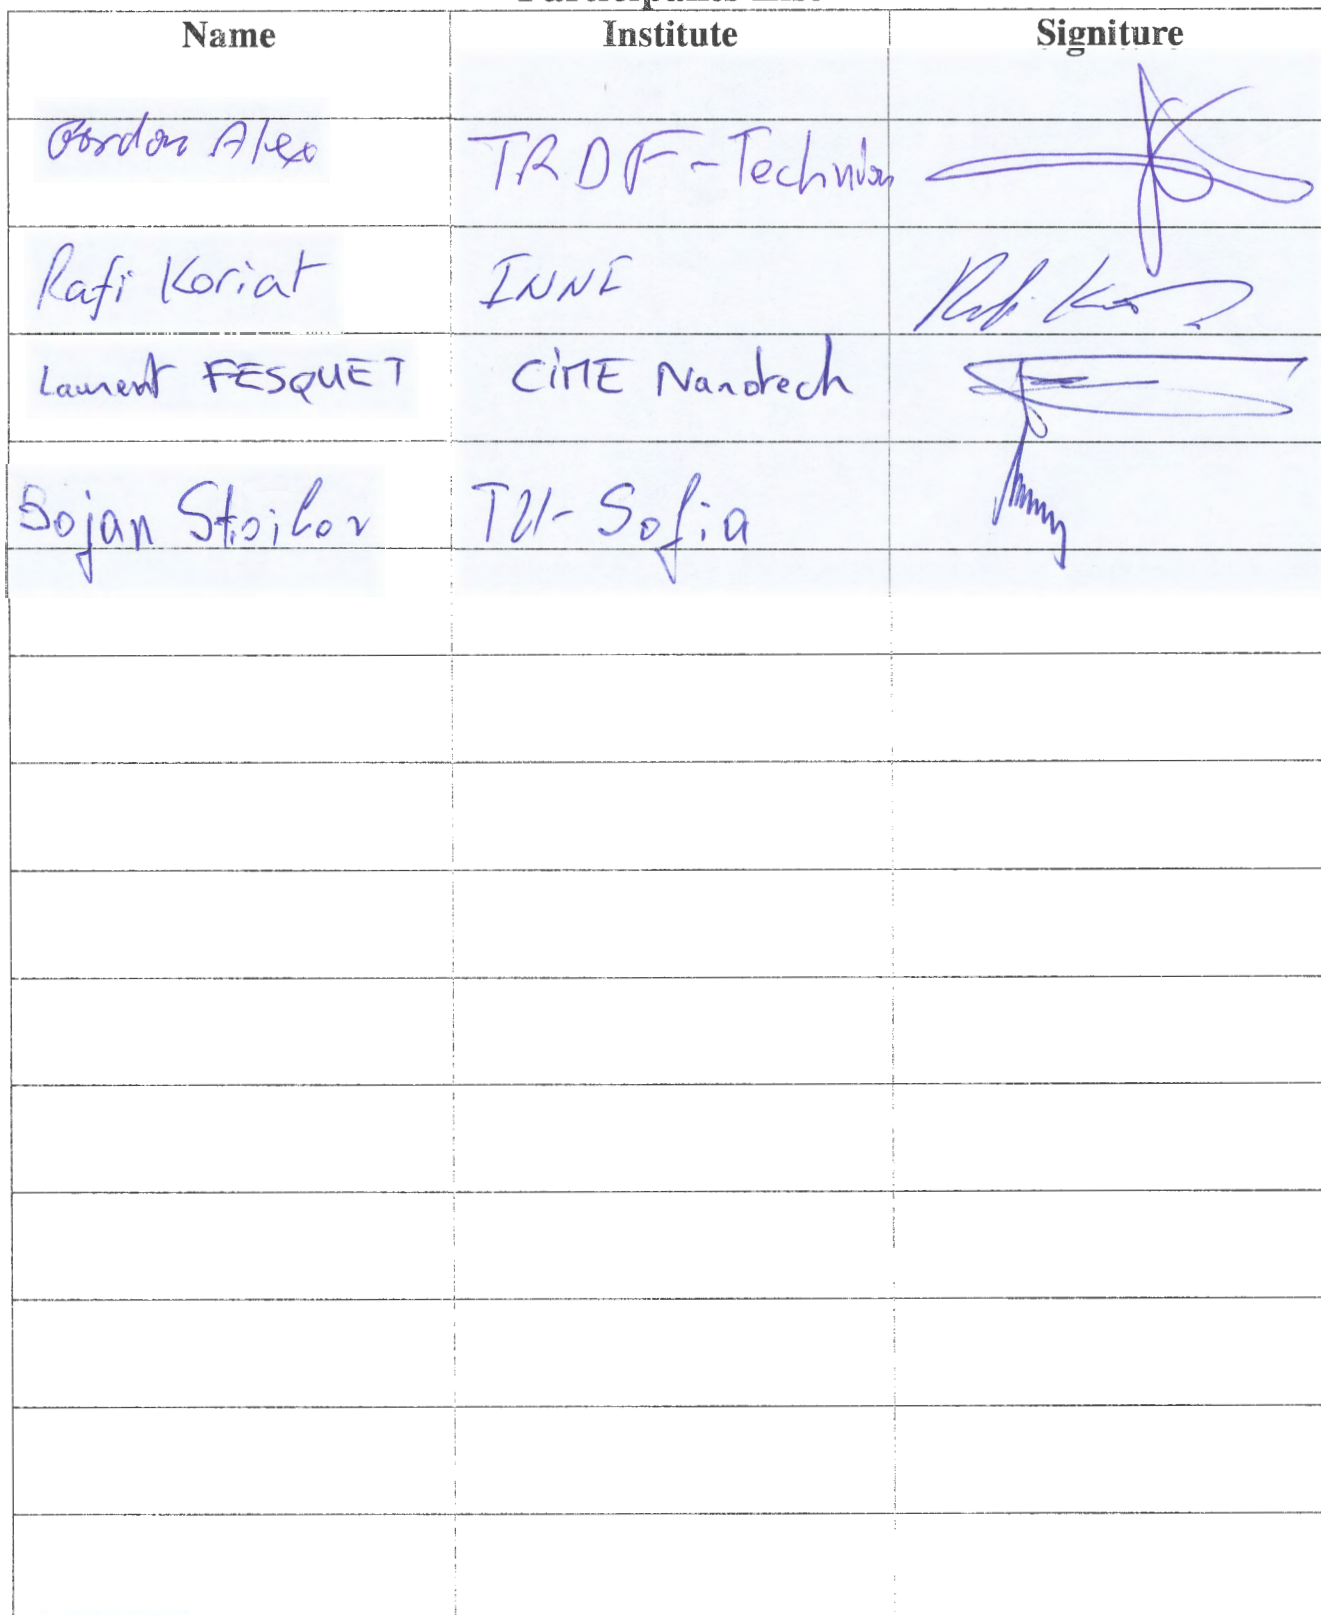 Participants List
Name Institute Signiture
Gordon Alex TRDF-Technion
Rafi Koriat INNI Rafi Ko
Laurent FESQUET CiME Nanotech
Bojan Stoilov TU-Sofia